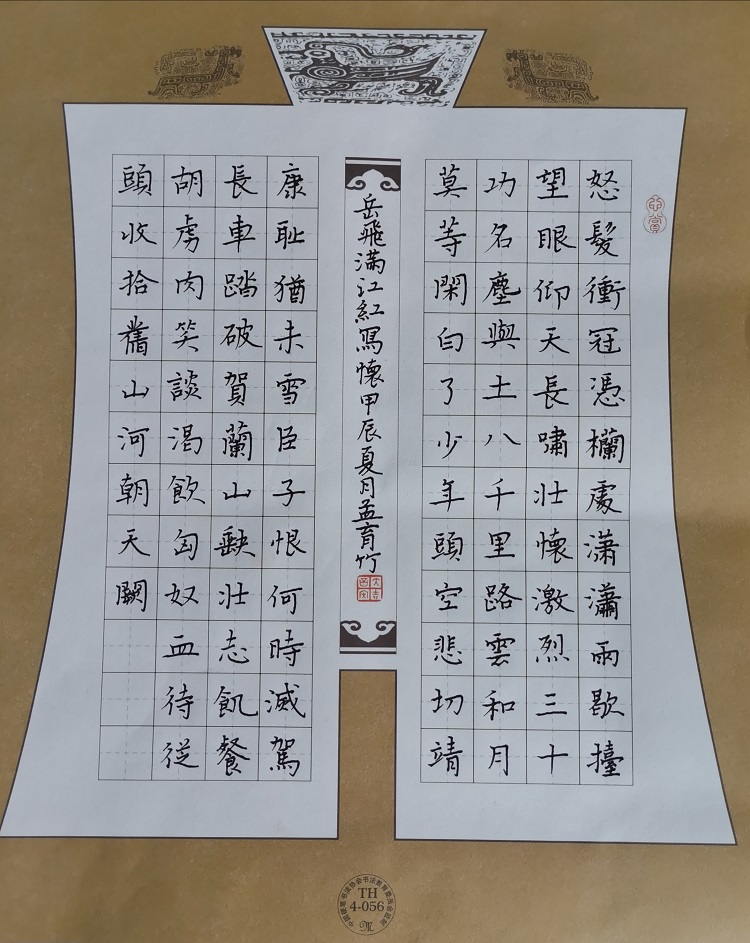 怒髮衝冠憑欄處潇瀟雨歇擡
望眼仰天長嘯壯懷激烈三十
功名塵與土八千里路雲和月
莫等閑白了少年頭空悲切靖
岳飛滿江紅寫懷甲辰夏月孟育竹
康耻猶未雪臣子恨何時滅駕
長車踏破賀蘭山缺壯志飢餐
胡虜肉笑談渴飲匈奴血待從
頭收拾舊山河朝天闕
TH
4-056